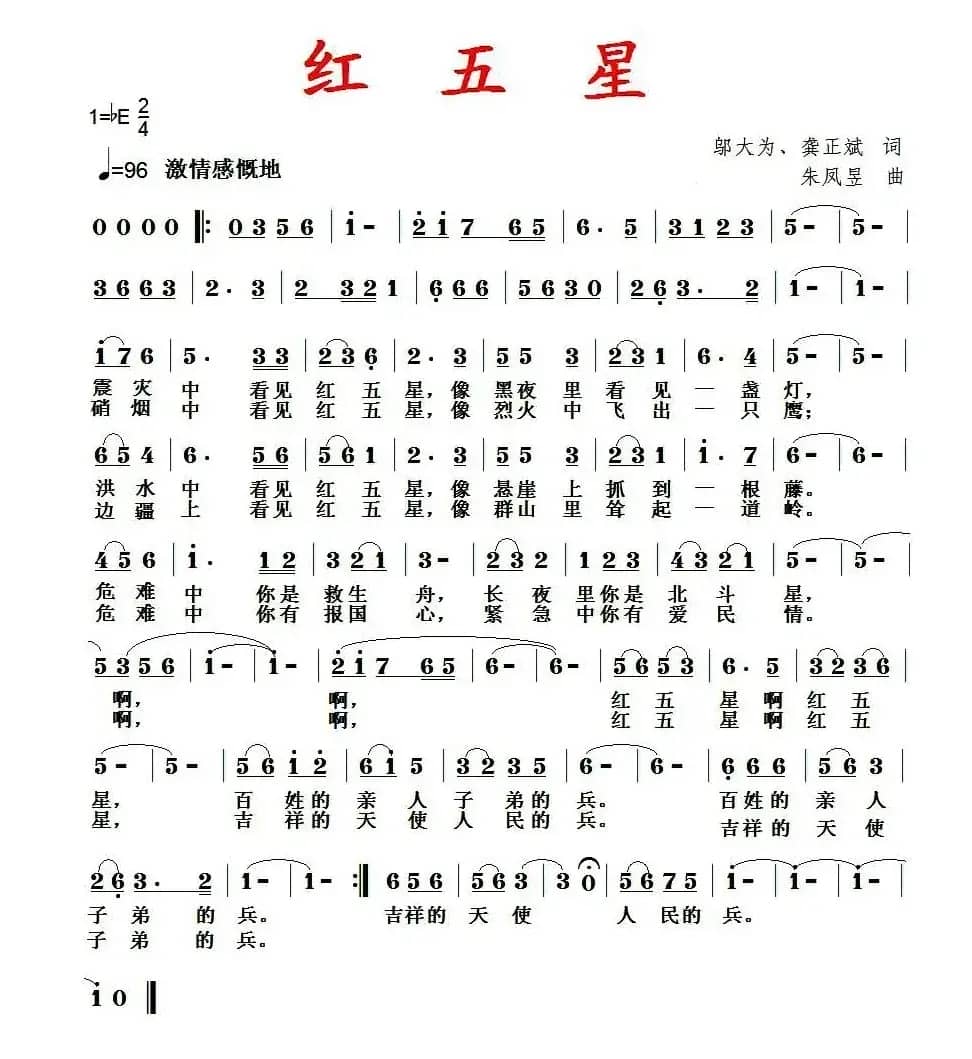 红五星
1=♭E 2/4
♩=96 激情感慨地
邬大为、龚正斌 词
朱凤昱 曲
0 0 0 0 ‖: 0 3 5 6 | i - | 2 i 7 6 5 | 6· 5 | 3 1 2 3 | 5 - | 5 - |
3 6 6 3 | 2· 3 | 2 3 2 1 | 6 6 6 | 5 6 3 0 | 2 6 3· 2 | 1 - | 1 - |
i 7 6 | 5· 3 3 | 2 3 6 | 2· 3 | 5 5 3 | 2 3 1 | 6· 4 | 5 - | 5 - |
震灾中 看见红五星,像黑夜里看见一盏灯,
硝烟中 看见红五星,像烈火中飞出一只鹰;
6 5 4 | 6· 5 6 | 5 6 1 | 2· 3 | 5 5 3 | 2 3 1 | i· 7 | 6 - | 6 - |
洪水中 看见红五星,像悬崖上抓到一根藤。
边疆上 看见红五星,像群山里耸起一道岭。
4 5 6 | i· 1 2 | 3 2 1 | 3 - | 2 3 2 | 1 2 3 | 4 3 2 1 | 5 - | 5 - |
危难中 你是救生舟,长夜里你是北斗星,
危难中 你有报国心,紧急中你有爱民情。
5 3 5 6 | i - | i - | 2 i 7 6 5 | 6 - | 6 - | 5 6 5 3 | 6· 5 | 3 2 3 6 |
啊, 啊, 红五星啊红五
啊, 啊, 红五星啊红五
5 - | 5 - | 5 6 i 2 | 6 i 5 | 3 2 3 5 | 6 - | 6 - | 6 6 6 | 5 6 3 |
星, 百姓的亲人子弟的兵。 百姓的亲人
星, 吉祥的天使人民的兵。 吉祥的天使
2 6 3· 2 | 1 - | 1 - :‖ 6 5 6 | 5 6 3 | 3 0 | 5 6 7 5 | i - | i - | i - |
子弟的兵。 吉祥的天使 人民的兵。
子弟的兵。
i 0 ‖